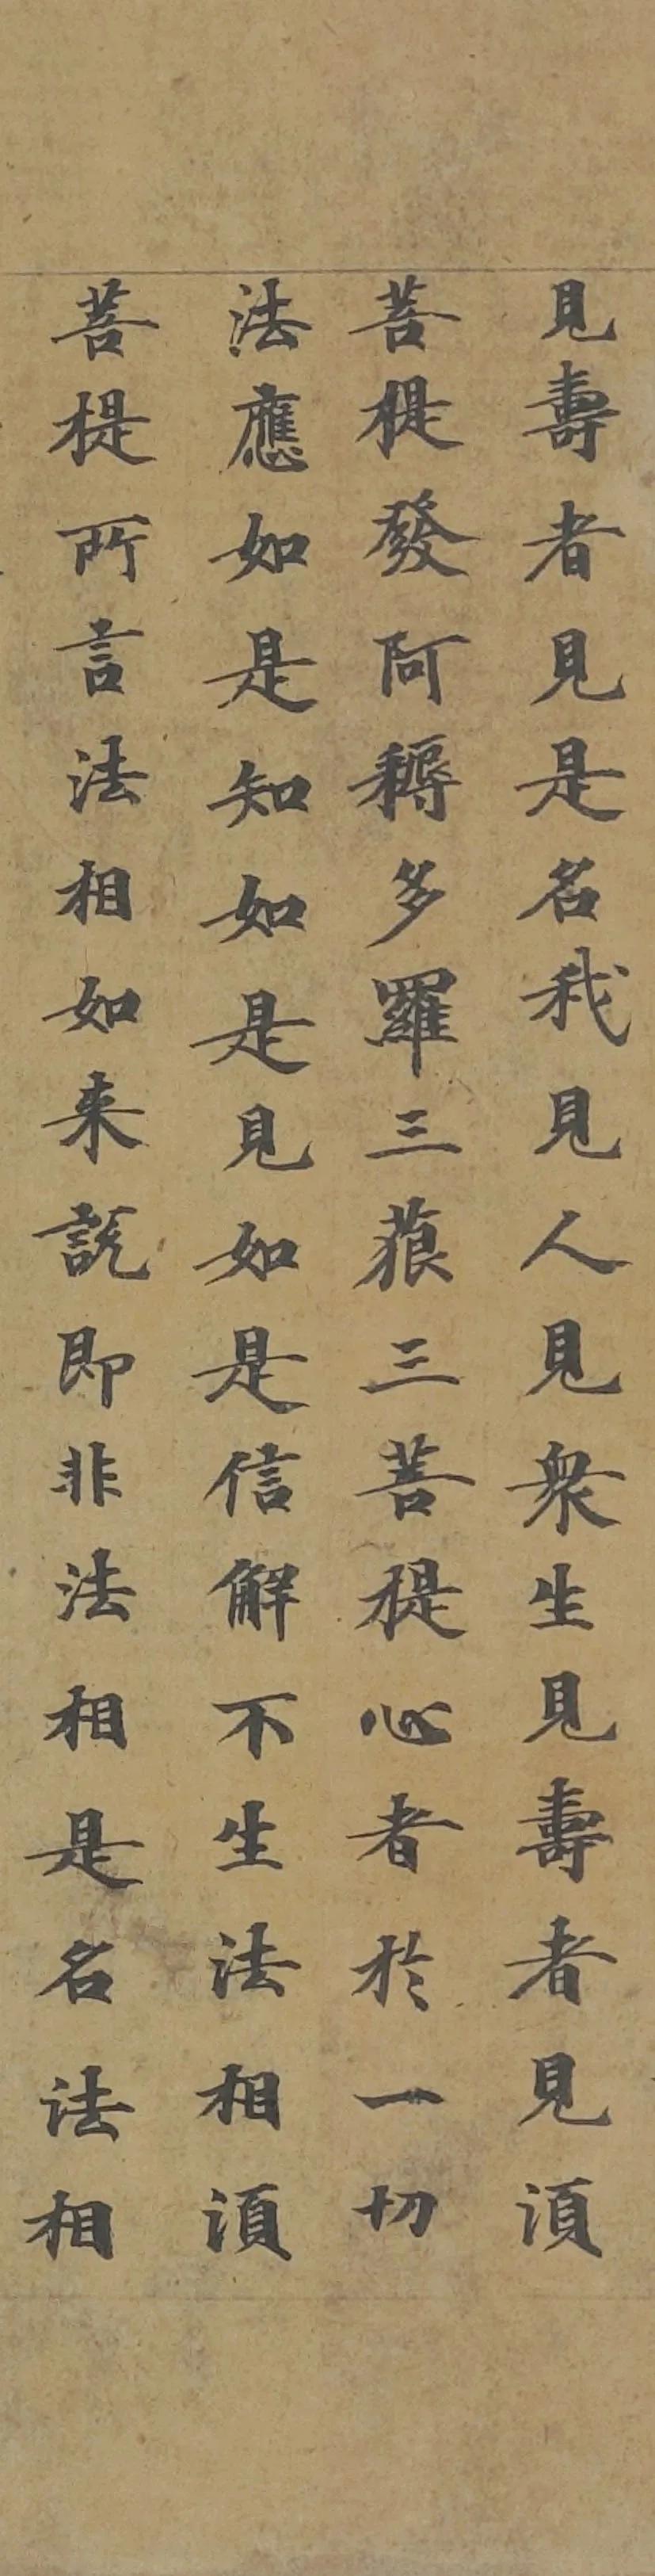 見壽者見是名我見人見衆生見壽者見須
菩提發阿耨多羅三藐三菩提心者於一切
法應如是知如是見如是信解不生法相須
菩提所言法相如来說即非法相是名法相